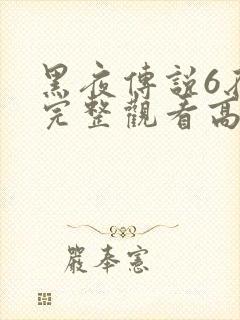 黑夜傳説6
完整觀看高
嚴奉憲